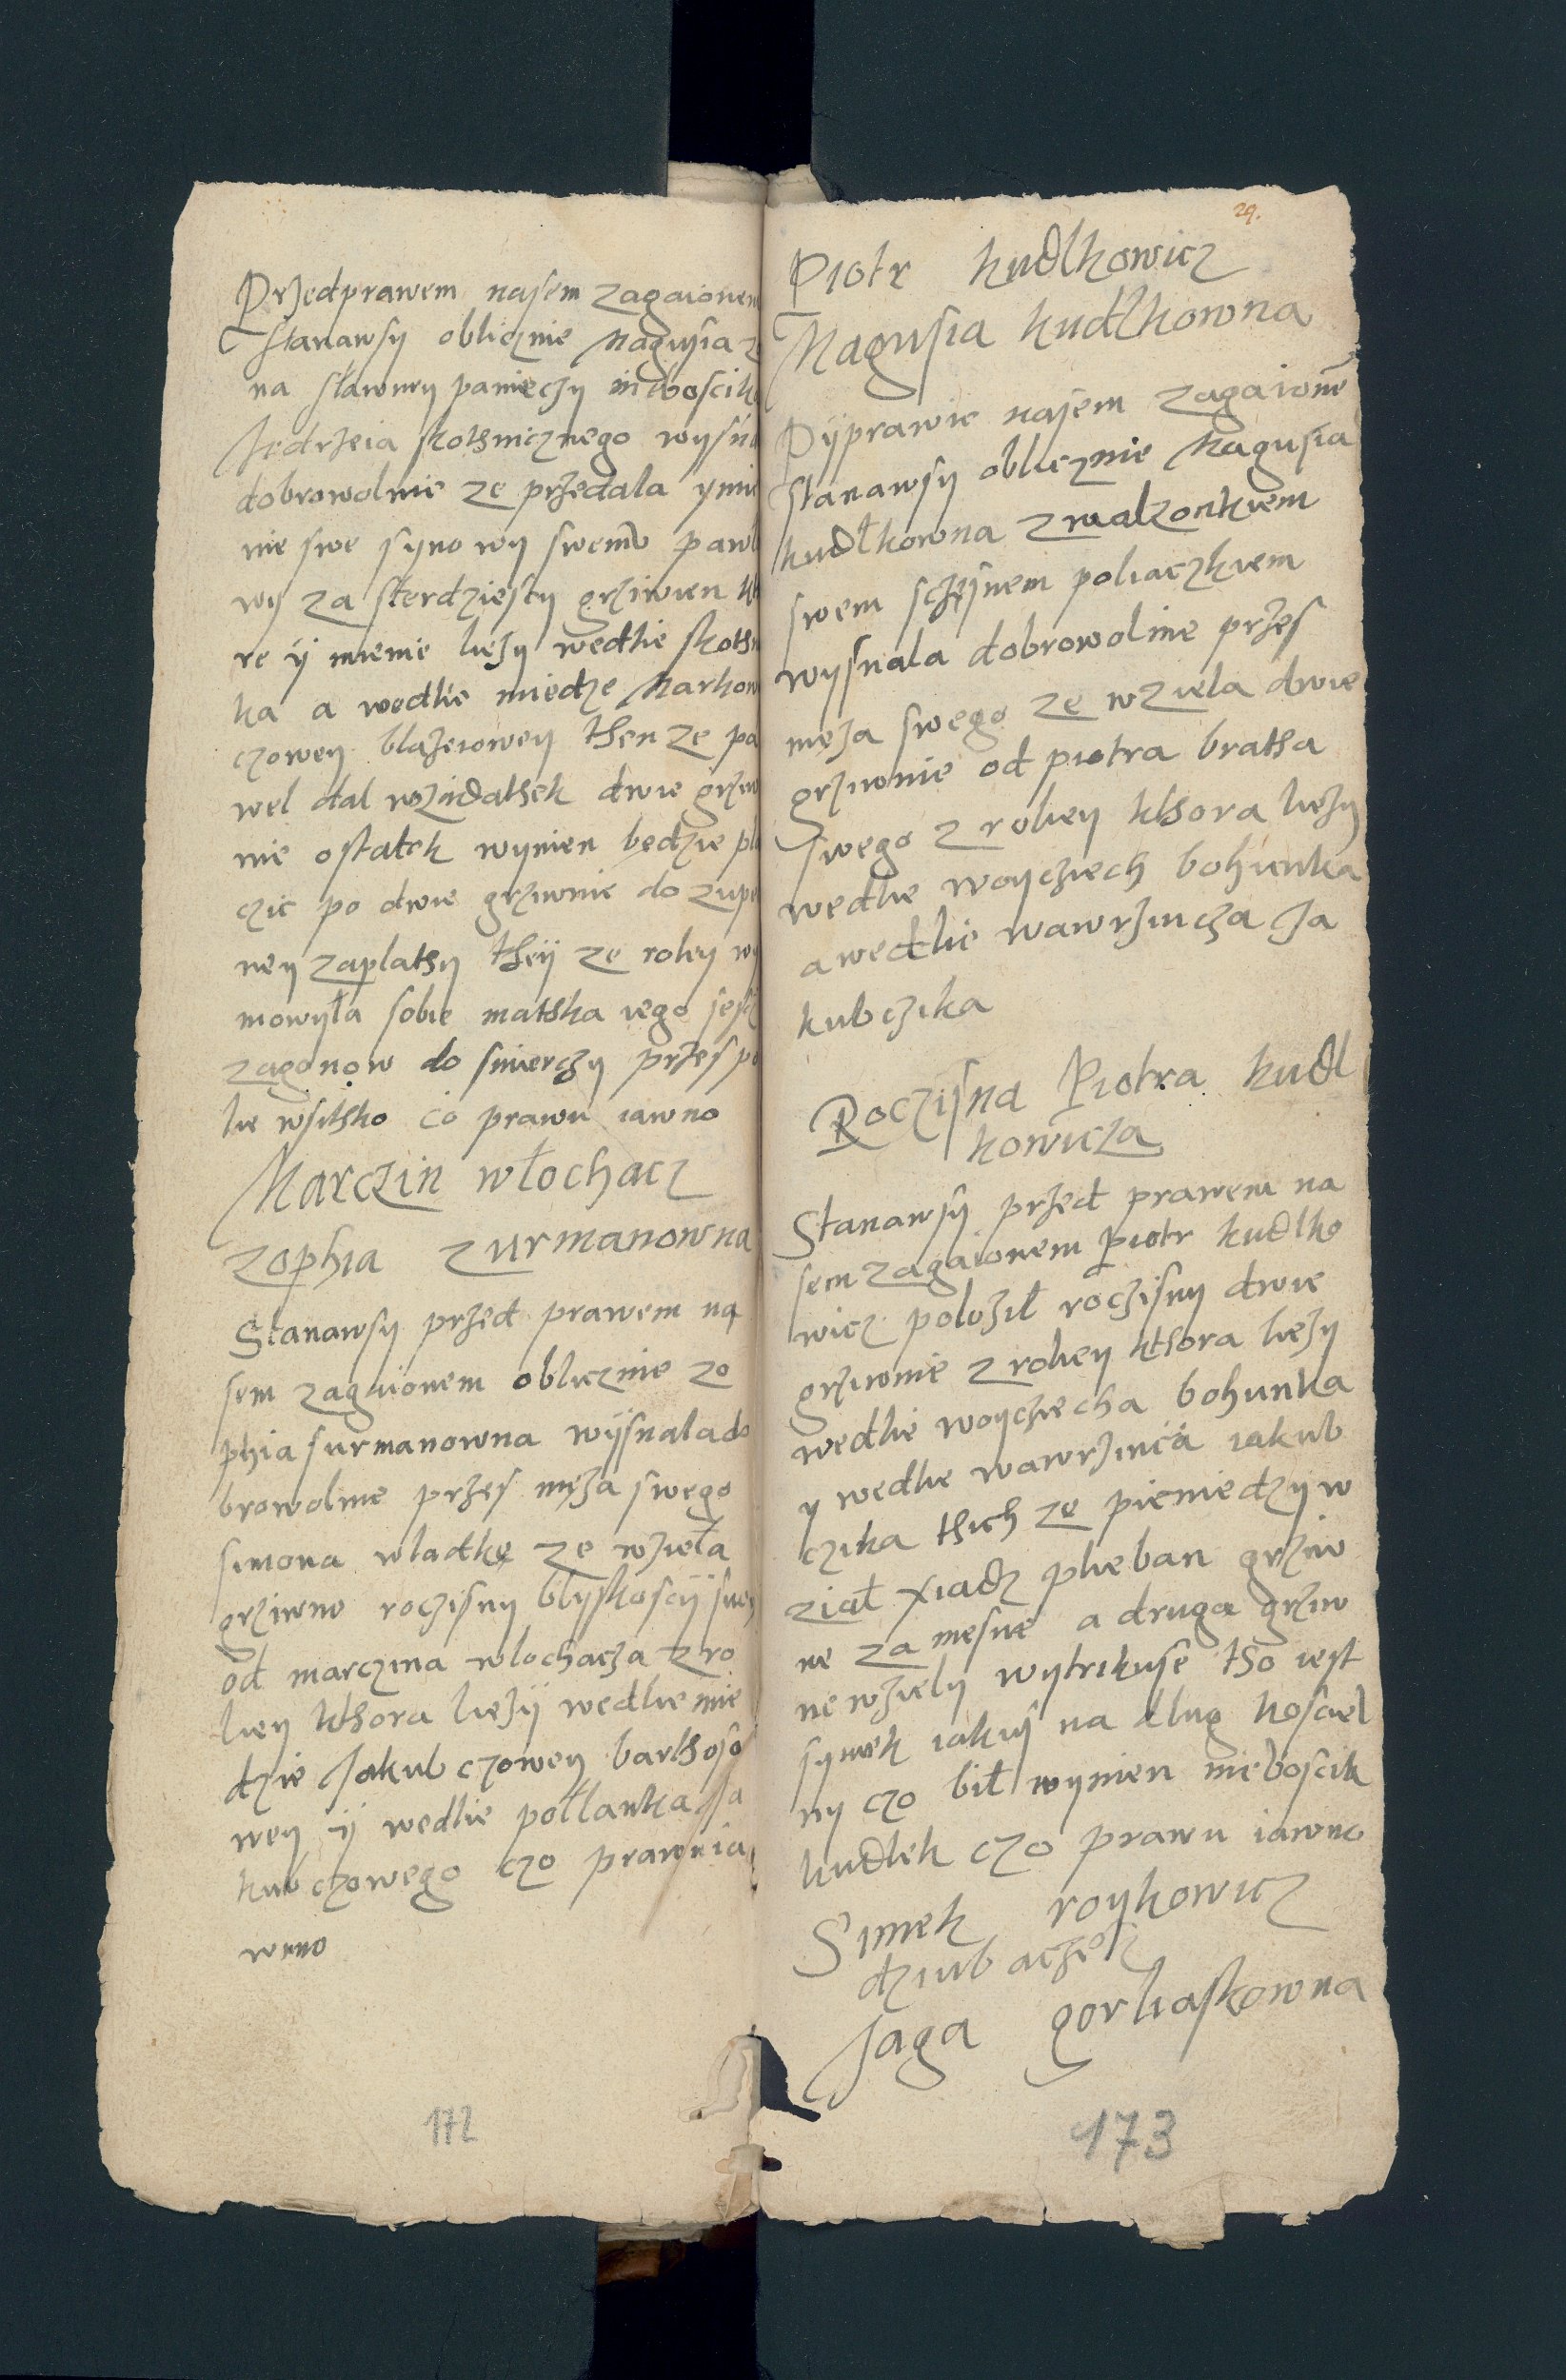 Przedprawem nasem zagaionem
stanawsy oblicznie Magusia z
na slawny pamieczy niebosciko
Jedrzeia skothnicznego wysna
dobrowolnie ze przedala ymie
nie swe synowy swemu pawlo
wy za sterdziesty grziwien kto
re ÿ mienie liezy wedlie skothn
ka a wedlie miedze Markow
czowey blazeiowey then ze pa
wel dal wzadathek dwie grziw
nie ostatek wynien bedzie pla
czic po dwie grziwnie do zupel
ney zaplathy theÿ ze roliey wy
mowyla sobie mathka iego sescz
zagonow do smierczy przes po
lie wsithko co prawu iawno
Marczin włochacz
Zophia Zurmanowna
Stanawsy przed prawem na
sem zagaionem oblicznie zo
phia surmanowna wÿsnala do
browolnie przes męza swego
simona wladkę ze wzieła
grziwno roczisny blyskoscÿ swey
od marczina wlochacza z ro
liey kthora liezÿ wedlie mie
dzie Jakubczowey barthoso
wey ÿ wedlie pollanka Ja
kubczowego czo prawu ia
wno
29.
Piotr kudlkowicz
Magusia kudlkowna
Pÿprawie nasem zagaione
stanawsy oblicznie Magusia
kudlkowna z malzonkiem
swem sczęsnem poliaczkiem
wysnala dobrowolnie przes
męza swego ze wziela dwie
grziwnie od piotra bratha
swego z roliey kthora liezy
wedlie woyciech bohunka
a wedlie wawrzincza Ja
kubczika
Roczisna Piotra kudl
kowicza
Stanawsy przed prawem na
sem zagaionem piotr kudlko
wicz polozil roczisny dwie
grziwnie z roliey kthora liezy
wedlie woyciecha bohunka
y wedlie wawrzinca iakub
czika thich ze pieniedzy w
ział xiadz plieban grziw
ne za mesne a druga grziw
ne wziely wytrikuse tho iest
symek iakuÿ na dlug kosciel
ny czo bił wynien nieboscik
kudlek czo prawu iawno
Simek roykowicz
dziubaczek
Jaga gorliaskowna
172
173